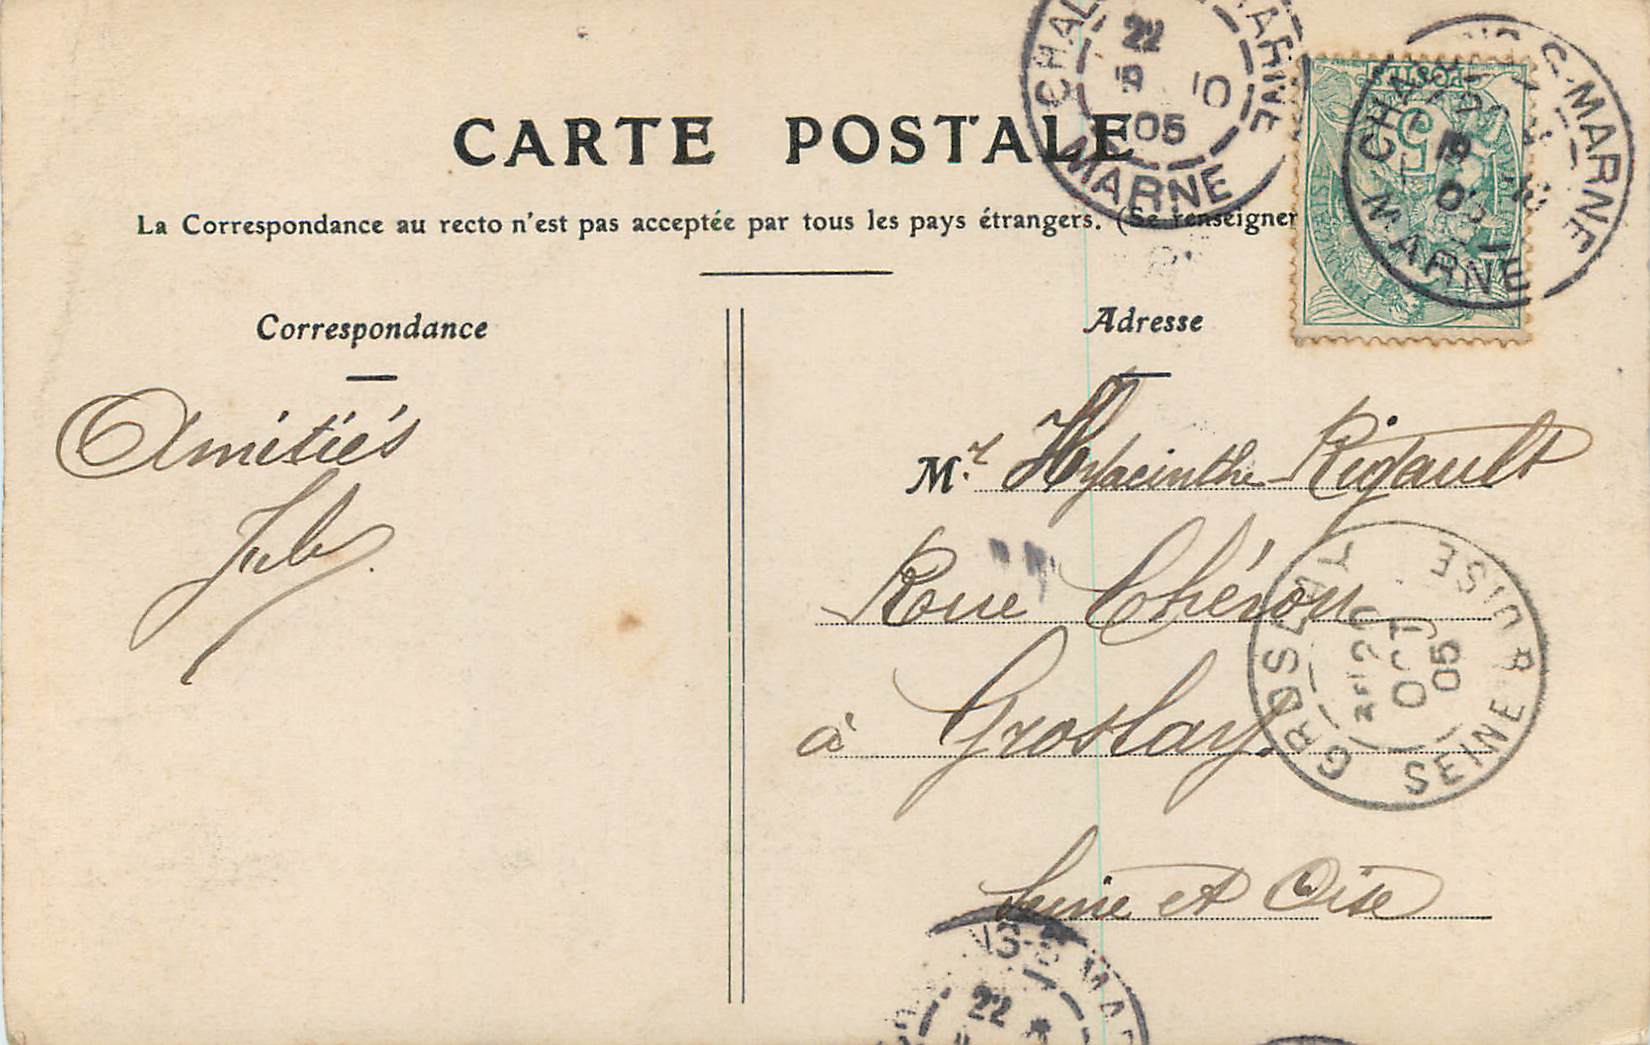 CARTE POSTALE
La Correspondance au recto n'est pas acceptée par tous les pays étrangers. (Se renseigner
Correspondance
Adresse
Amitiés
Mr. Hyacinthe Rigault
Rue Chéron
à Groslay
Seine et Oise
22
19 10
05
MARNE
POSTES
5
CHA S-MARNE
19
05
MARNE
GROSLAY
20
OCT
05
SEINE & OISE
NS-S-MAR
22